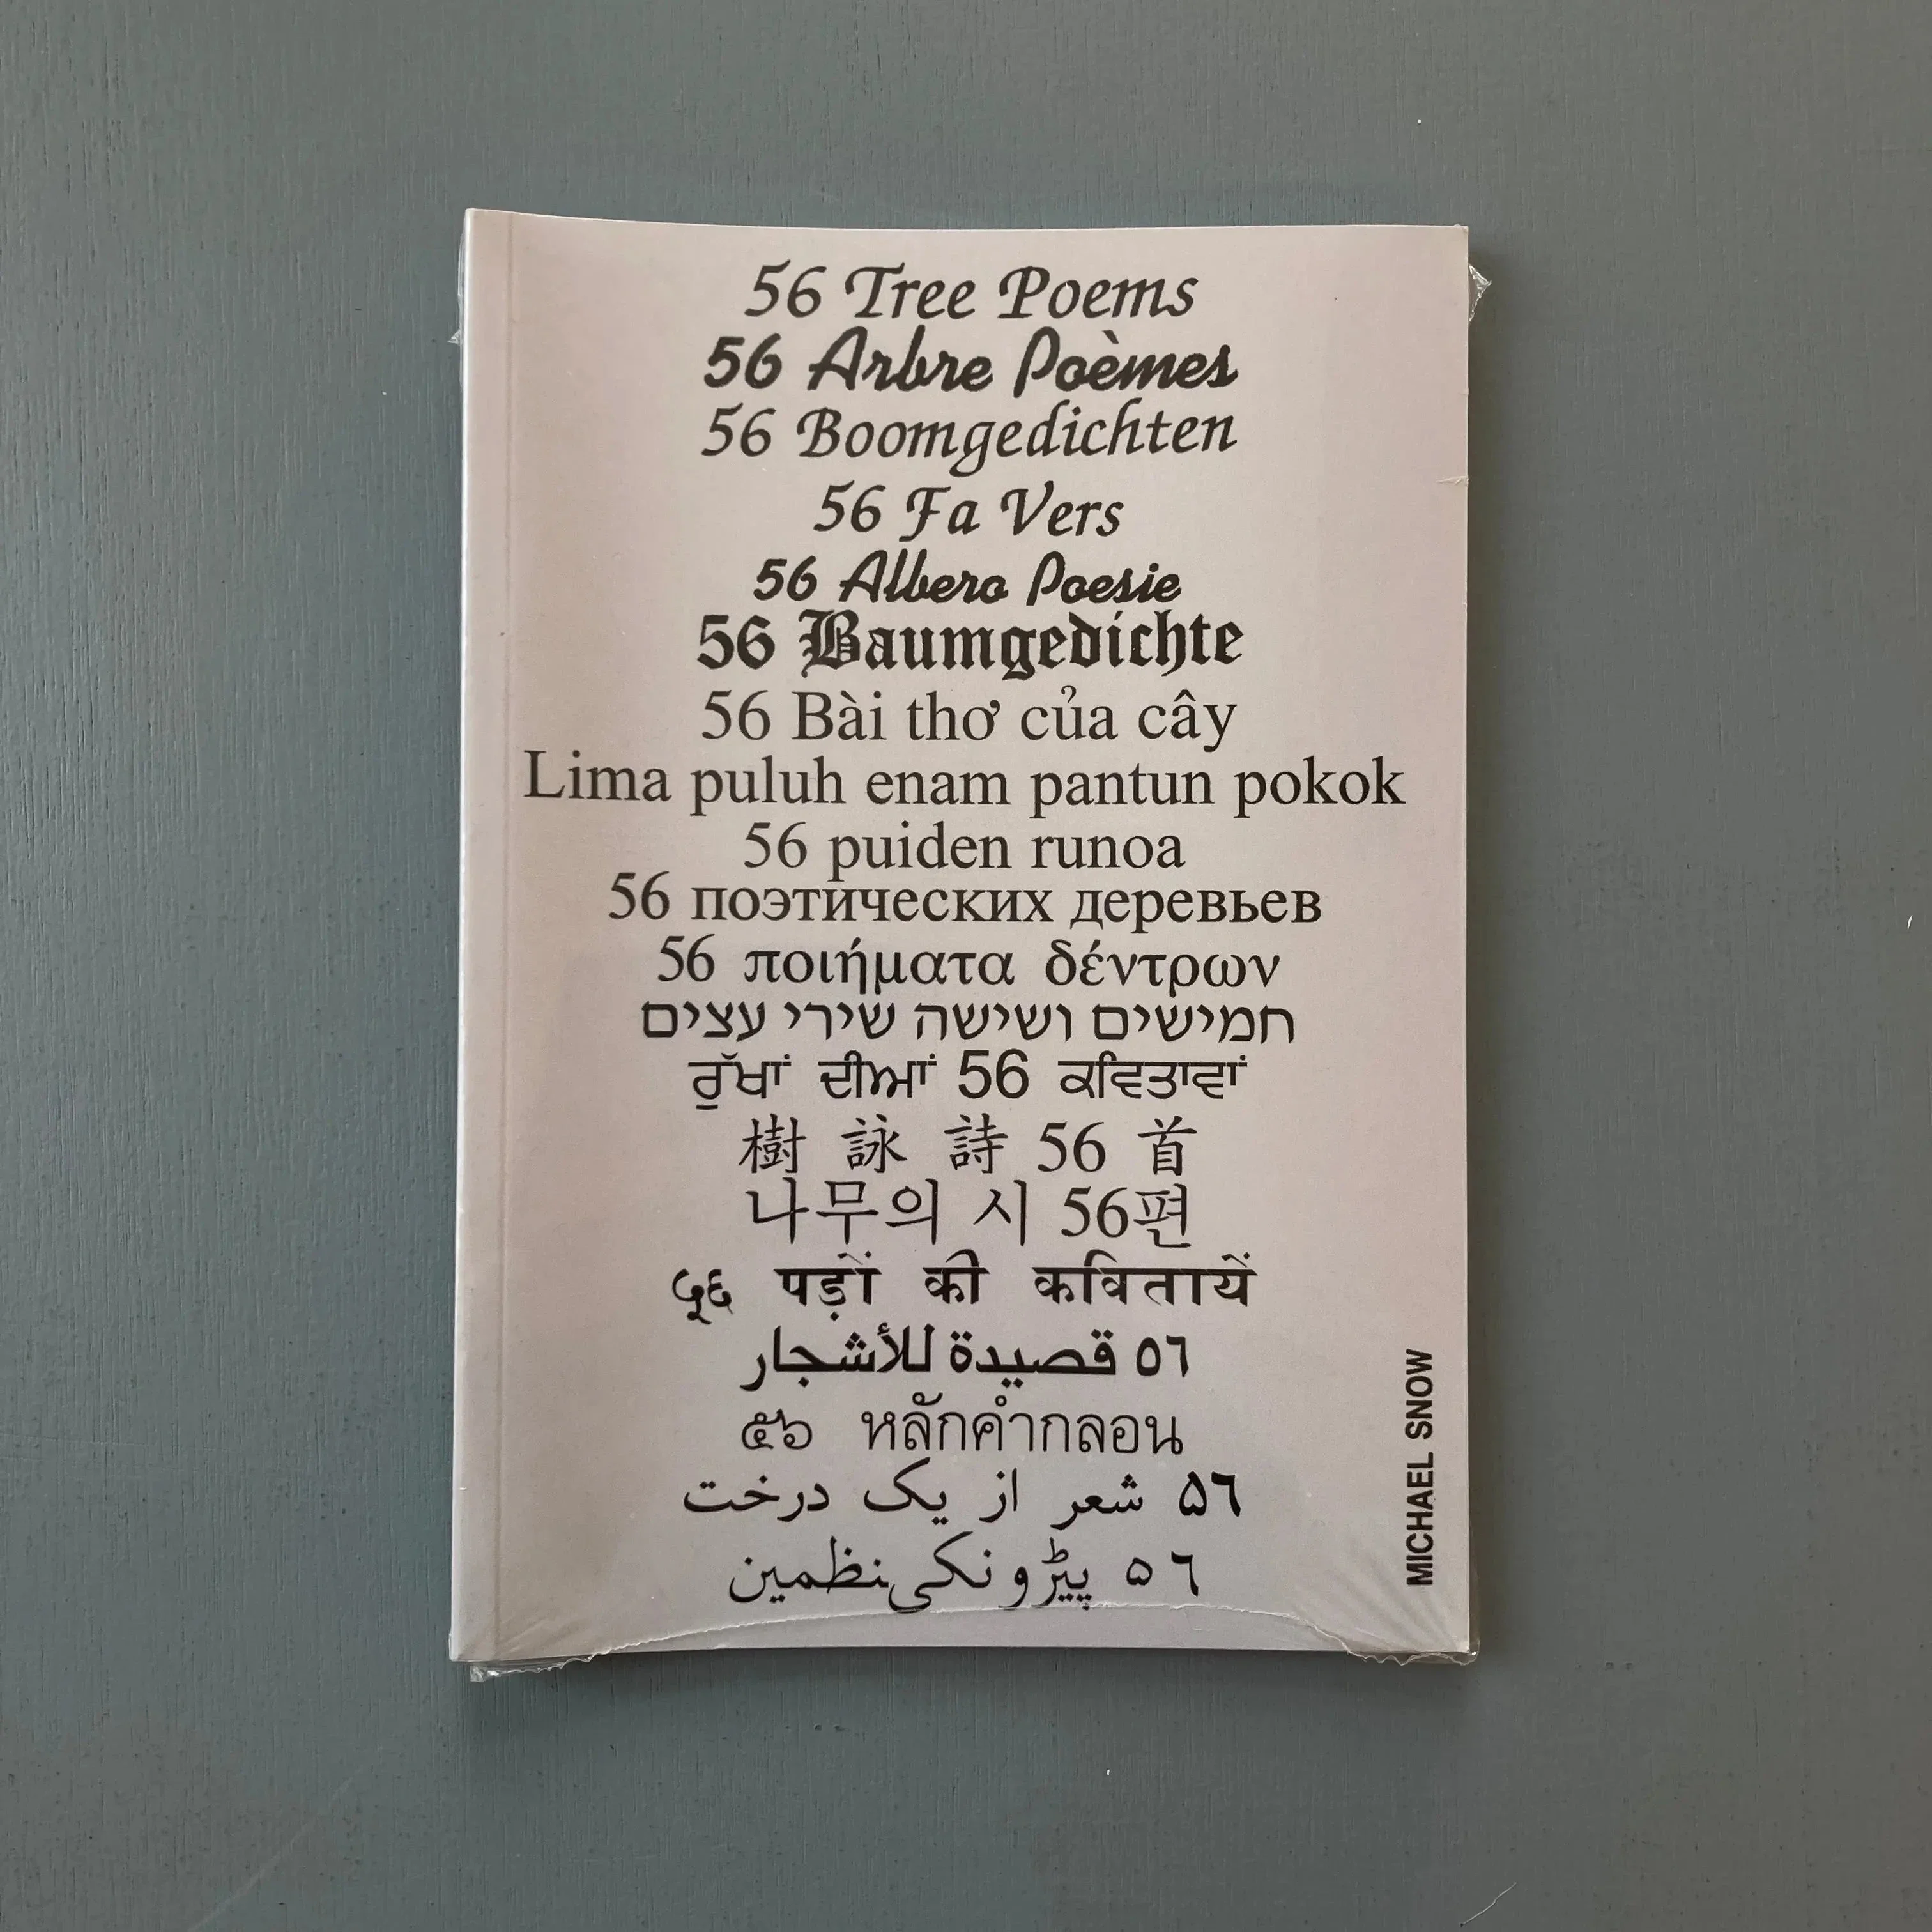 56 Tree Poems
56 Arbre Poèmes
56 Boomgedichten
56 Fa Vers
56 Albero Poesie
56 Baumgedichte
56 Bài thơ của cây
Lima puluh enam pantun pokok
56 puiden runoa
56 поэтических деревьев
56 ποιήματα δέντρων
חמישים ושישה שירי עצים
ਰੁੱਖਾਂ ਦੀਆਂ 56 ਕਵਿਤਾਵਾਂ
樹 詠 詩 56 首
나무의 시 56편
५६ पड़ों की कवितायें
٥٦ قصيدة للأشجار
๕๖ หลักคำกลอน
۵٦ شعر از یک درخت
۵٦ پیڑونکی نظمین
MICHAEL SNOW